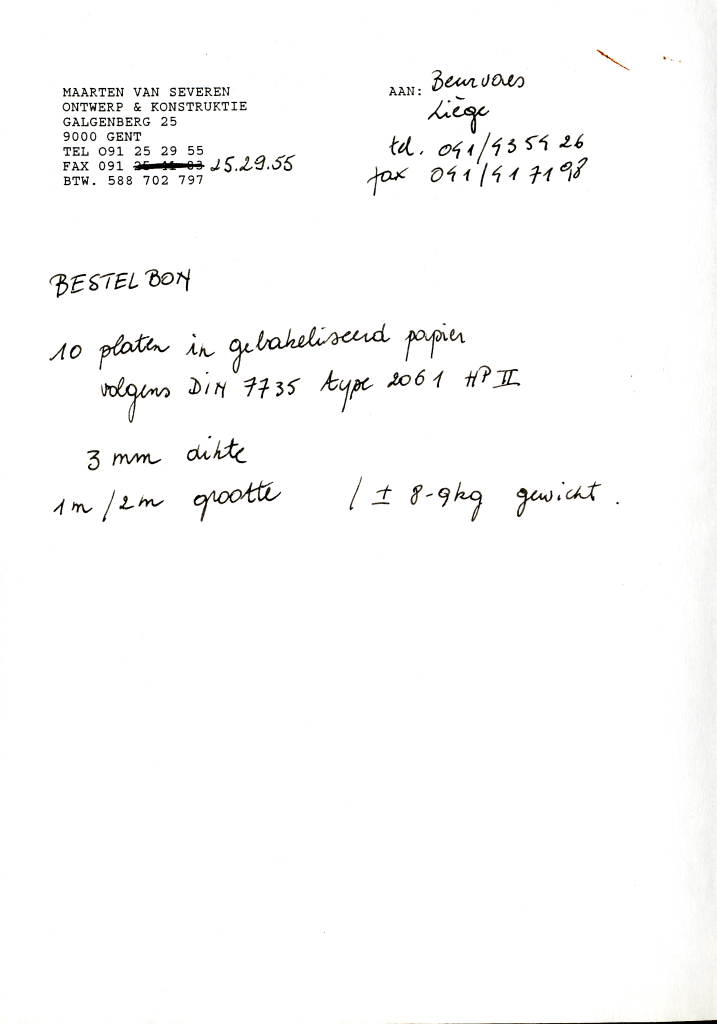 MAARTEN VAN SEVEREN
ONTWERP & KONSTRUKTIE
GALGENBERG 25
9000 GENT
TEL 091 25 29 55
FAX 091 25.29.55
BTW. 588 702 797
AAN: Beurvoes
Liège
tel. 041/43 54 26
fax 041/41 71 98
BESTELBON
10 platen in gebakeliseerd papier
volgens DIN 7735 type 2061 HP II
3 mm dikte
1m/2m grootte / ± 8-9kg gewicht.